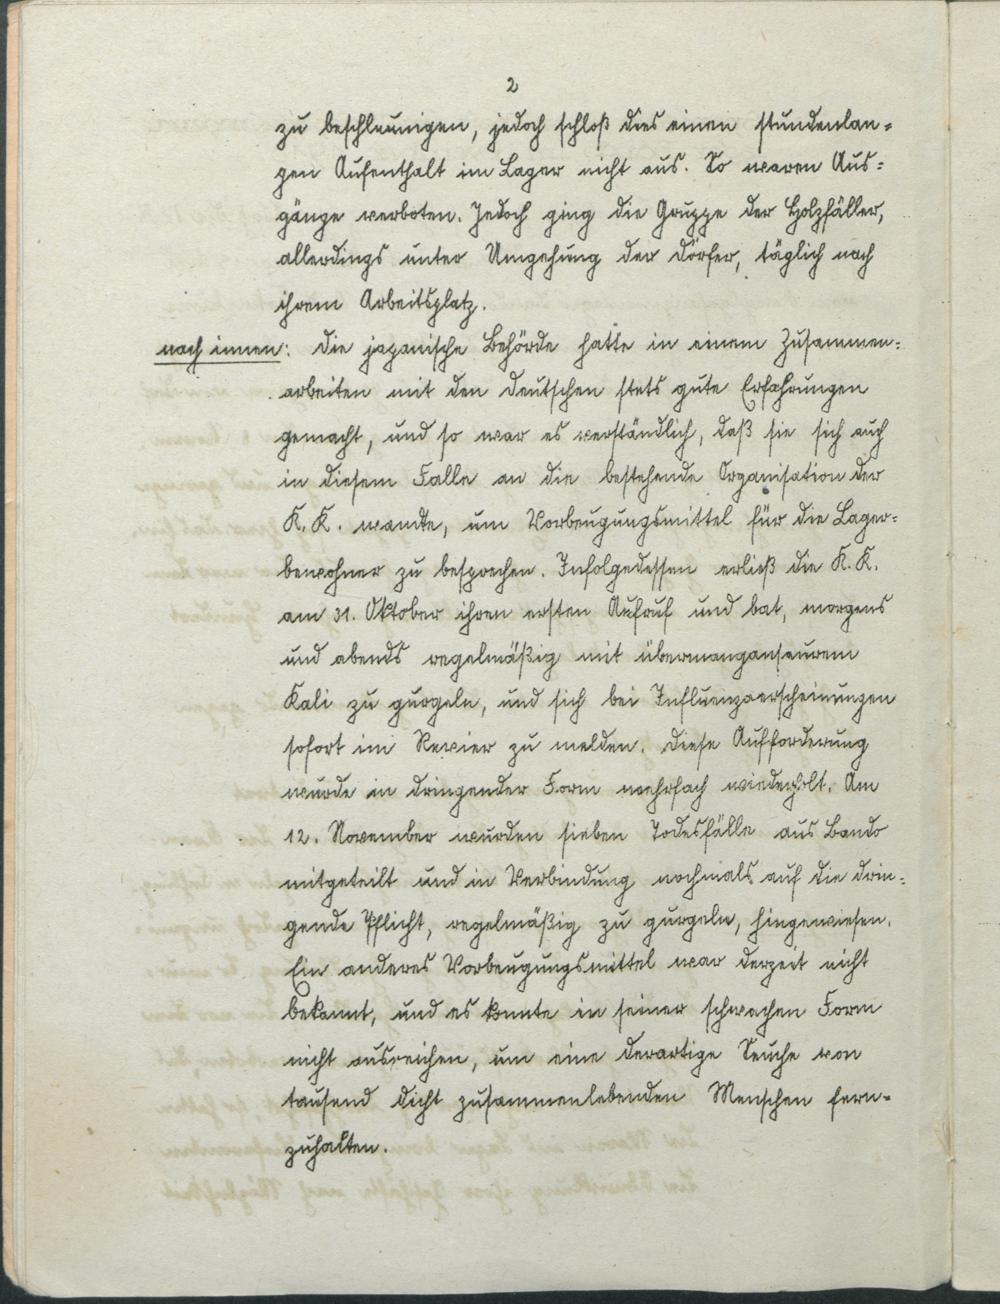 2
zu beschleunigen, jedoch schloß dies einen stundenlan=
gen Aufenthalt im Lager nicht aus. So waren Aus=
gänge verboten. Jedoch ging die Gruppe der Holzfäller,
allerdings unter Umgehung der Dörfer, täglich nach
ihrem Arbeitsplatz.
nach innen: Die japanische Behörde hatte in einem Zusammen=
arbeiten mit den Deutschen stets gute Erfahrungen
gemacht, und so war es verständlich, daß sie sich auch
in diesem Falle an die bestehende Organisation der
K.K. wandte, um Vorbeugungsmittel für die Lager=
bewohner zu besprechen. Infolgedessen erließ die K.K.
am 31. Oktober ihren ersten Aufruf und bat, morgens
und abends regelmäßig mit übermangansaurem
Kali zu gurgeln, und sich bei Influenzaerscheinungen
sofort im Revier zu melden. Diese Aufforderung
wurde in dringender Form mehrfach wiederholt. Am
12. November wurden sieben Todesfälle aus Bando
mitgeteilt und in Verbindung nochmals auf die drin=
gende Pflicht, regelmäßig zu gurgeln, hingewiesen.
Ein anderes Vorbeugungsmittel war derzeit nicht
bekannt, und es konnte in seiner schwachen Form
nicht ausreichen, um eine derartige Seuche von
tausend dicht zusammenlebenden Menschen fern=
zuhalten.